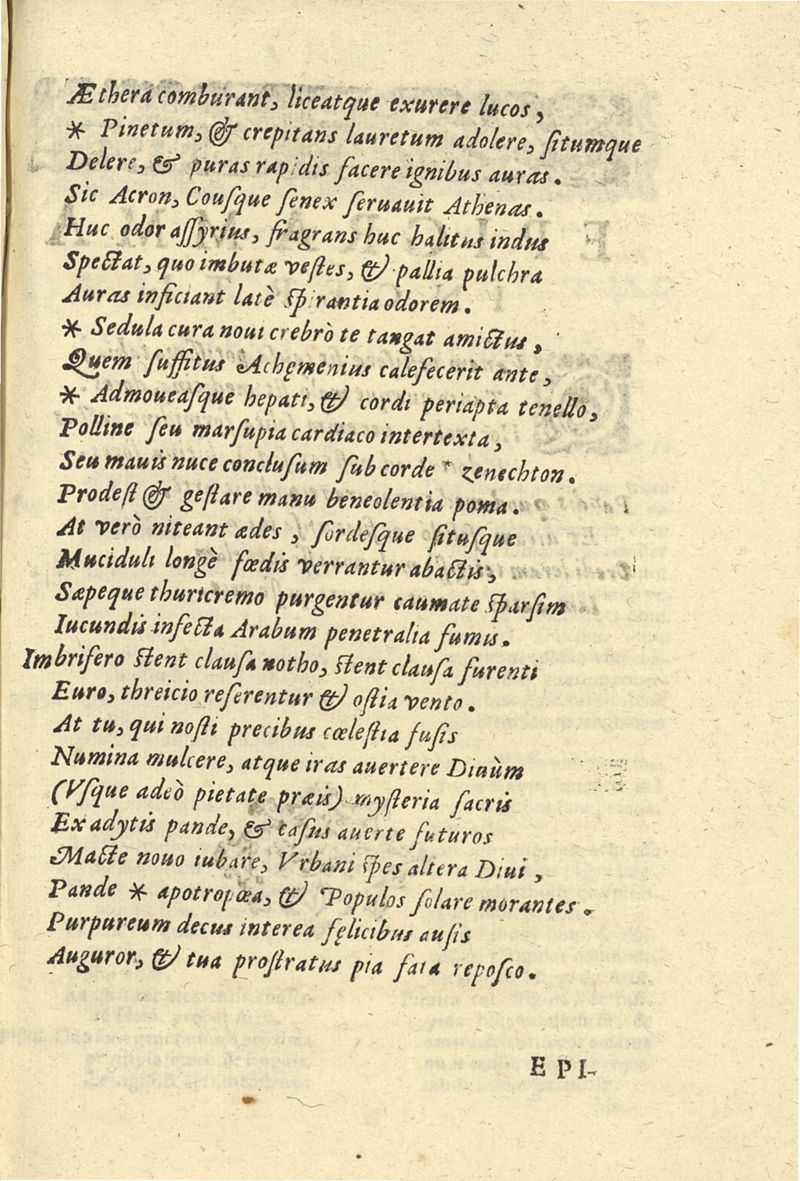 Æthera comburant, liceatque exurere lucos,
* Pinetum, & crepitans lauretum adolere, ſitumque
Delere, & puras rapidis facere ignibus auras.
Sic Acron, Couſque ſenex ſeruauit Athenas.
Huc odor aſſyrius, fragrans huc halitus indus
Spectat, quo imbutæ veſtes, & pallia pulchra
Auras inficiant latè ſpirantia odorem.
* Sedula cura noui crebrò te tangat amictus,
Quem ſuffitus Achęmenius calefecerit ante,
* Admoueaſque hepati, & cordi periapta tenello,
Polline ſeu marſupia cardiaco intertexta,
Seu mauis nuce concluſum ſub corde * zenechton.
Prodeſt & geſtare manu beneolentia poma.
At verò niteant ædes, ſordeſque ſituſque
Muciduli longè fœdis verrantur abactis,
Sæpeque thuricremo purgentur caumate ſparſim
Iucundis infecta Arabum penetralia fumis.
Imbrifero ſtent clauſa notho, ſtent clauſa furenti
Euro, threicio reſerentur & oſtia vento.
At tu, qui noſti precibus cœleſtia fuſis
Numina mulcere, atque iras auertere Diuùm
(Vſque adeò pietate præis) myſteria ſacris
Ex adytis pande, & caſus auerte futuros
Macte nouo iubare, Vrbani ſpes altera Diui,
Pande * apotropœa, & Populos ſolare morantes.
Purpureum decus interea fęlicibus auſis
Auguror, & tua proſtratus pia fata repoſco.
EPI-